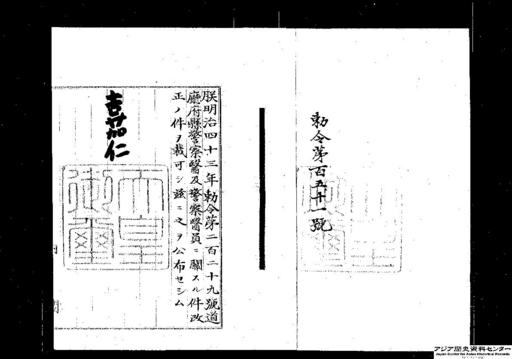 勅令第百五十一號
朕明治四十三年勅令第二百二十九號道
廳府縣警察醫及警察醫員ニ關スル件改
正ノ件ヲ裁可シ茲ニ之ヲ公布セシム
嘉仁
天皇
御璽
アジア歴史資料センター
Japan Center for Asian Historical Records